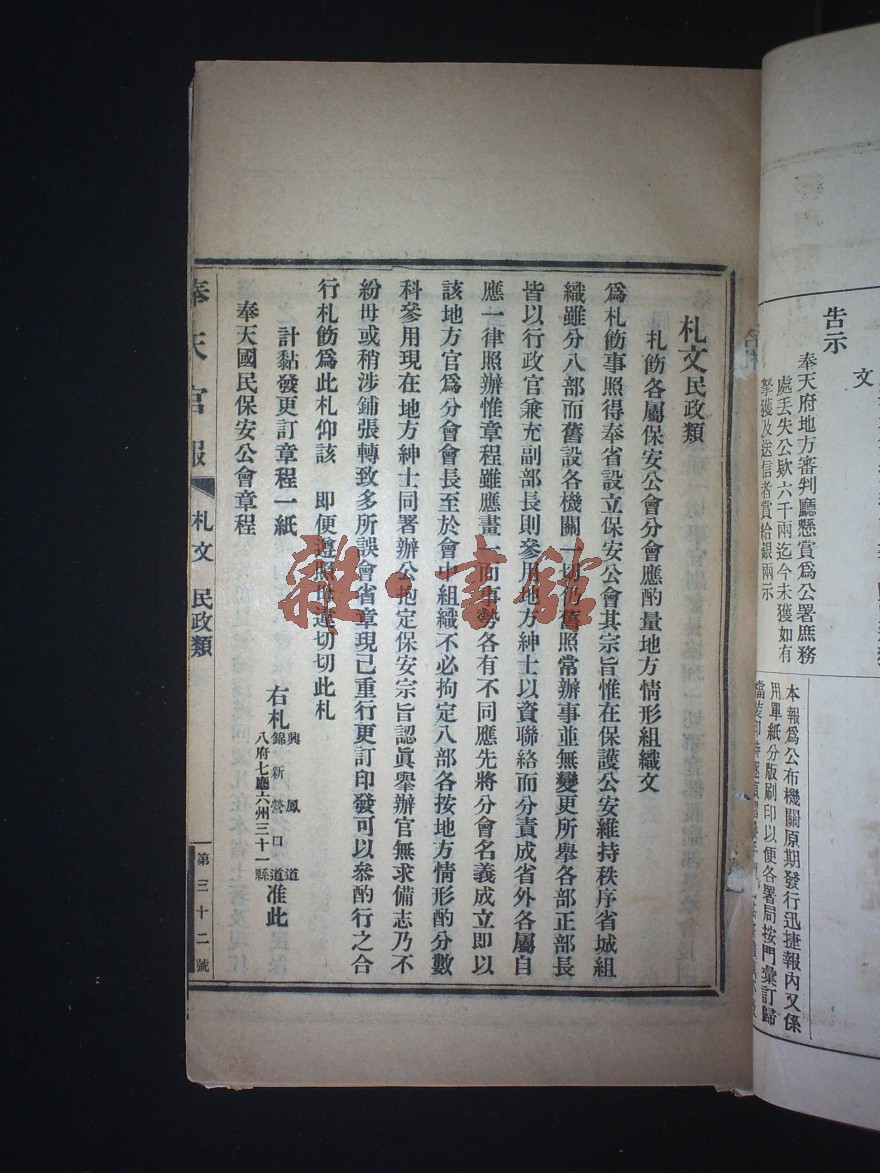 告示
文
奉天府地方審判廳懸賞爲公署庶務
處丟失公欵六千兩迄今未獲如有
拏獲及送信者賞給銀兩示
本報爲公布機關原期發行迅捷報內又係
用單紙分版刷印以便各署局按門彙訂歸
札文民政類
札飭各屬保安公會分會應酌量地方情形組織文
爲札飭事照得奉省設立保安公會其宗旨惟在保護公安維持秩序省城組
織雖分八部而舊設各機關一切仍舊照常辦事並無變更所舉各部正部長
皆以行政官兼充副部長則參用地方紳士以資聯絡而分責成省外各屬自
應一律照辦惟章程雖應畫一而事勢各有不同應先將分會名義成立即以
該地方官爲分會會長至於會中組織不必拘定八部各按地方情形酌分數
科參用現在地方紳士同署辦公抱定保安宗旨認眞舉辦官無求備志乃不
紛毋或稍涉鋪張轉致多所誤會省章現已重行更訂印發可以叅酌行之合
行札飭爲此札仰該 即便遵照毋違切切此札
計黏發更訂章程一紙
右札
興鳳道
錦新營口道
八府七廳六州三十一縣
准此
奉天國民保安公會章程
奉天官報
札文 民政類
第三十二號
雜·書館